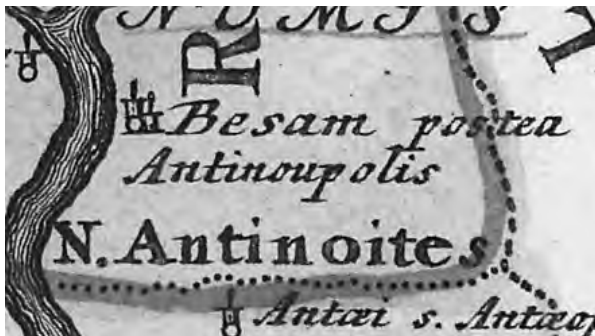 NOMIS
R
Besam postea
Antinoupolis
N. Antinoites
Antæi s. Antæop